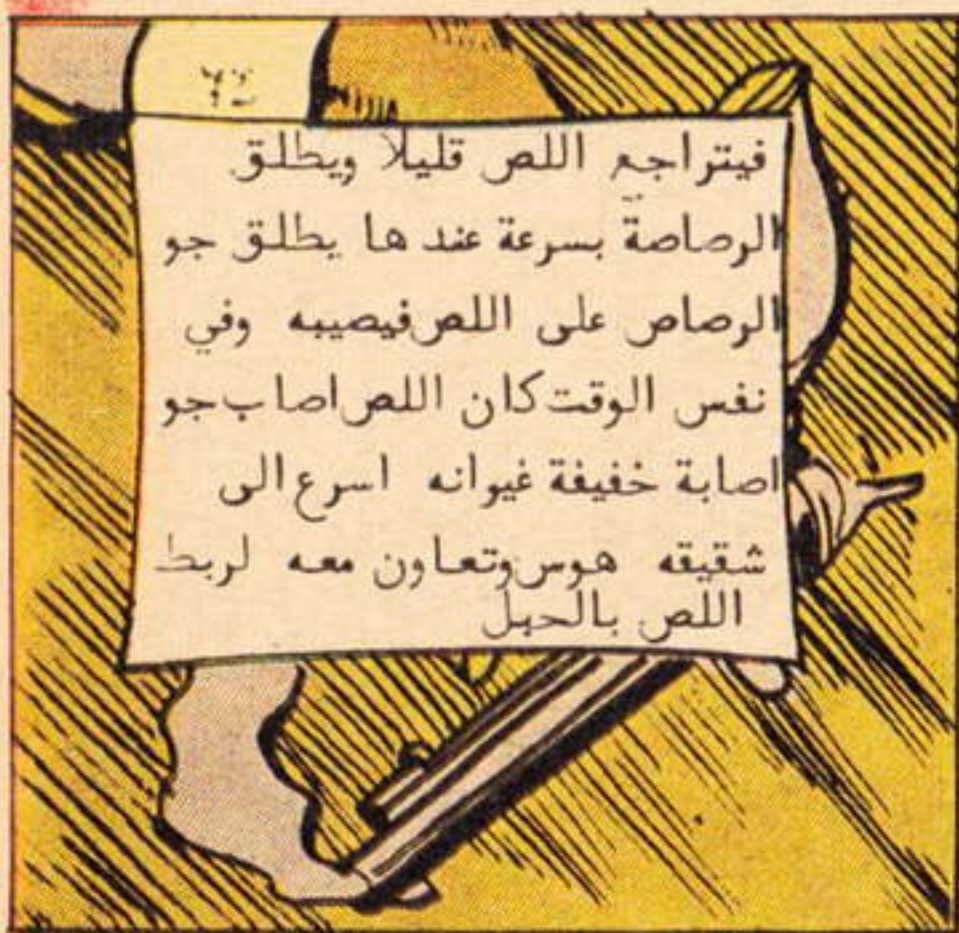 فيتراجع اللص قليلا ويطلق
الرصاصة بسرعة عندها يطلق جو
الرصاص على اللص فيصيبه وفي
نفس الوقت كان اللص اصاب جو
اصابة خفيفة غيرانه اسرع الى
شقيقه هوس وتعاون معه لربط
اللص بالحبل